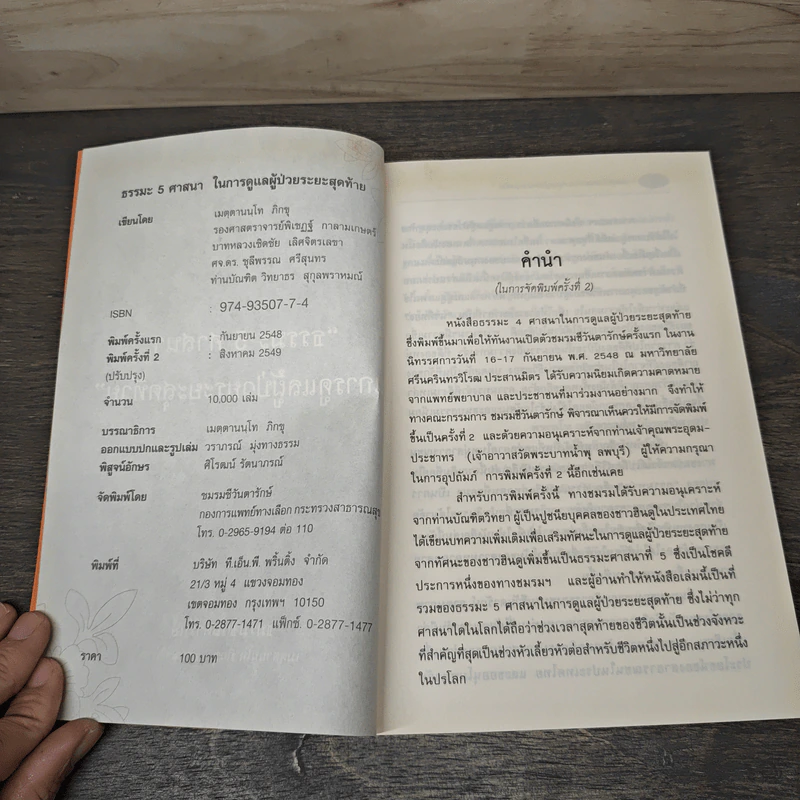 ธรรมะ 5 ศาสนา ในการดูแลผู้ป่วยระยะสุดท้าย
เขียนโดย เมตฺตานนฺโท ภิกขุ
รองศาสตราจารย์พิเชฏฐ์ กาลามเกษตร์
บาทหลวงเชิดชัย เลิศจิตรเลขา
ศจ.ดร. ชุลีพรรณ ศรีสุนทร
ท่านบัณฑิต วิทยาธร สุกุลพราหมณ์
ISBN : 974-93507-7-4
พิมพ์ครั้งแรก : กันยายน 2548
พิมพ์ครั้งที่ 2 : สิงหาคม 2549
(ปรับปรุง)
จำนวน 10,000 เล่ม
บรรณาธิการ เมตฺตานนฺโท ภิกขุ
ออกแบบปกและรูปเล่ม วราภรณ์ มุ่งทางธรรม
พิสูจน์อักษร ศิโรฒน์ รัตนาภรณ์
จัดพิมพ์โดย ชมรมชีวันตารักษ์
กองการแพทย์ทางเลือก กระทรวงสาธารณสุข
โทร. 0-2965-9194 ต่อ 110
พิมพ์ที่ บริษัท ที.เอ็น.พี. พริ้นติ้ง จำกัด
21/3 หมู่ 4 แขวงจอมทอง
เขตจอมทอง กรุงเทพฯ 10150
โทร. 0-2877-1471 แฟ็กซ์. 0-2877-1477
ราคา 100 บาท
คำนำ
(ในการจัดพิมพ์ครั้งที่ 2)
หนังสือธรรมะ 4 ศาสนาในการดูแลผู้ป่วยระยะสุดท้าย
ซึ่งพิมพ์ขึ้นมาเพื่อให้ทันงานเปิดตัวชมรมชีวันตารักษ์ครั้งแรก ในงาน
นิทรรศการวันที่ 16-17 กันยายน พ.ศ. 2548 ณ มหาวิทยาลัย
ศรีนครินทรวิโรฒ ประสานมิตร ได้รับความนิยมเกิดความคาดหมาย
จากแพทย์พยาบาล และประชาชนที่มาร่วมงานอย่างมาก จึงทำให้
ทางคณะกรรมการ ชมรมชีวันตารักษ์ พิจารณาเห็นควรให้มีการจัดพิมพ์
ขึ้นเป็นครั้งที่ 2 และด้วยความอนุเคราะห์จากท่านเจ้าคุณพระอุดม-
ประชาทร (เจ้าอาวาสวัดพระบาทน้ำพุ ลพบุรี) ผู้ให้ความกรุณา
ในการอุปถัมภ์ การพิมพ์ครั้งที่ 2 นี้อีกเช่นเคย
สำหรับการพิมพ์ครั้งนี้ ทางชมรมได้รับความอนุเคราะห์
จากท่านบัณฑิตวิทยา ผู้เป็นปูชนียบุคคลของชาวฮินดูในประเทศไทย
ได้เขียนบทความเพิ่มเติมเพื่อเสริมทัศนะในการดูแลผู้ป่วยระยะสุดท้าย
จากทัศนะของชาวฮินดูเพิ่มขึ้นเป็นธรรมะศาสนาที่ 5 ซึ่งเป็นโชคดี
ประการหนึ่งของทางชมรมฯ และผู้อ่านทำให้หนังสือเล่มนี้เป็นที่
รวมของธรรมะ 5 ศาสนาในการดูแลผู้ป่วยระยะสุดท้าย ซึ่งไม่ว่าทุก
ศาสนาใดในโลกได้ถือว่าช่วงเวลาสุดท้ายของชีวิตนั้นเป็นช่วงจังหวะ
ที่สำคัญที่สุดเป็นช่วงหัวเลี้ยวหัวต่อสำหรับชีวิตหนึ่งไปสู่อีกสภาวะหนึ่ง
ในปรโลก